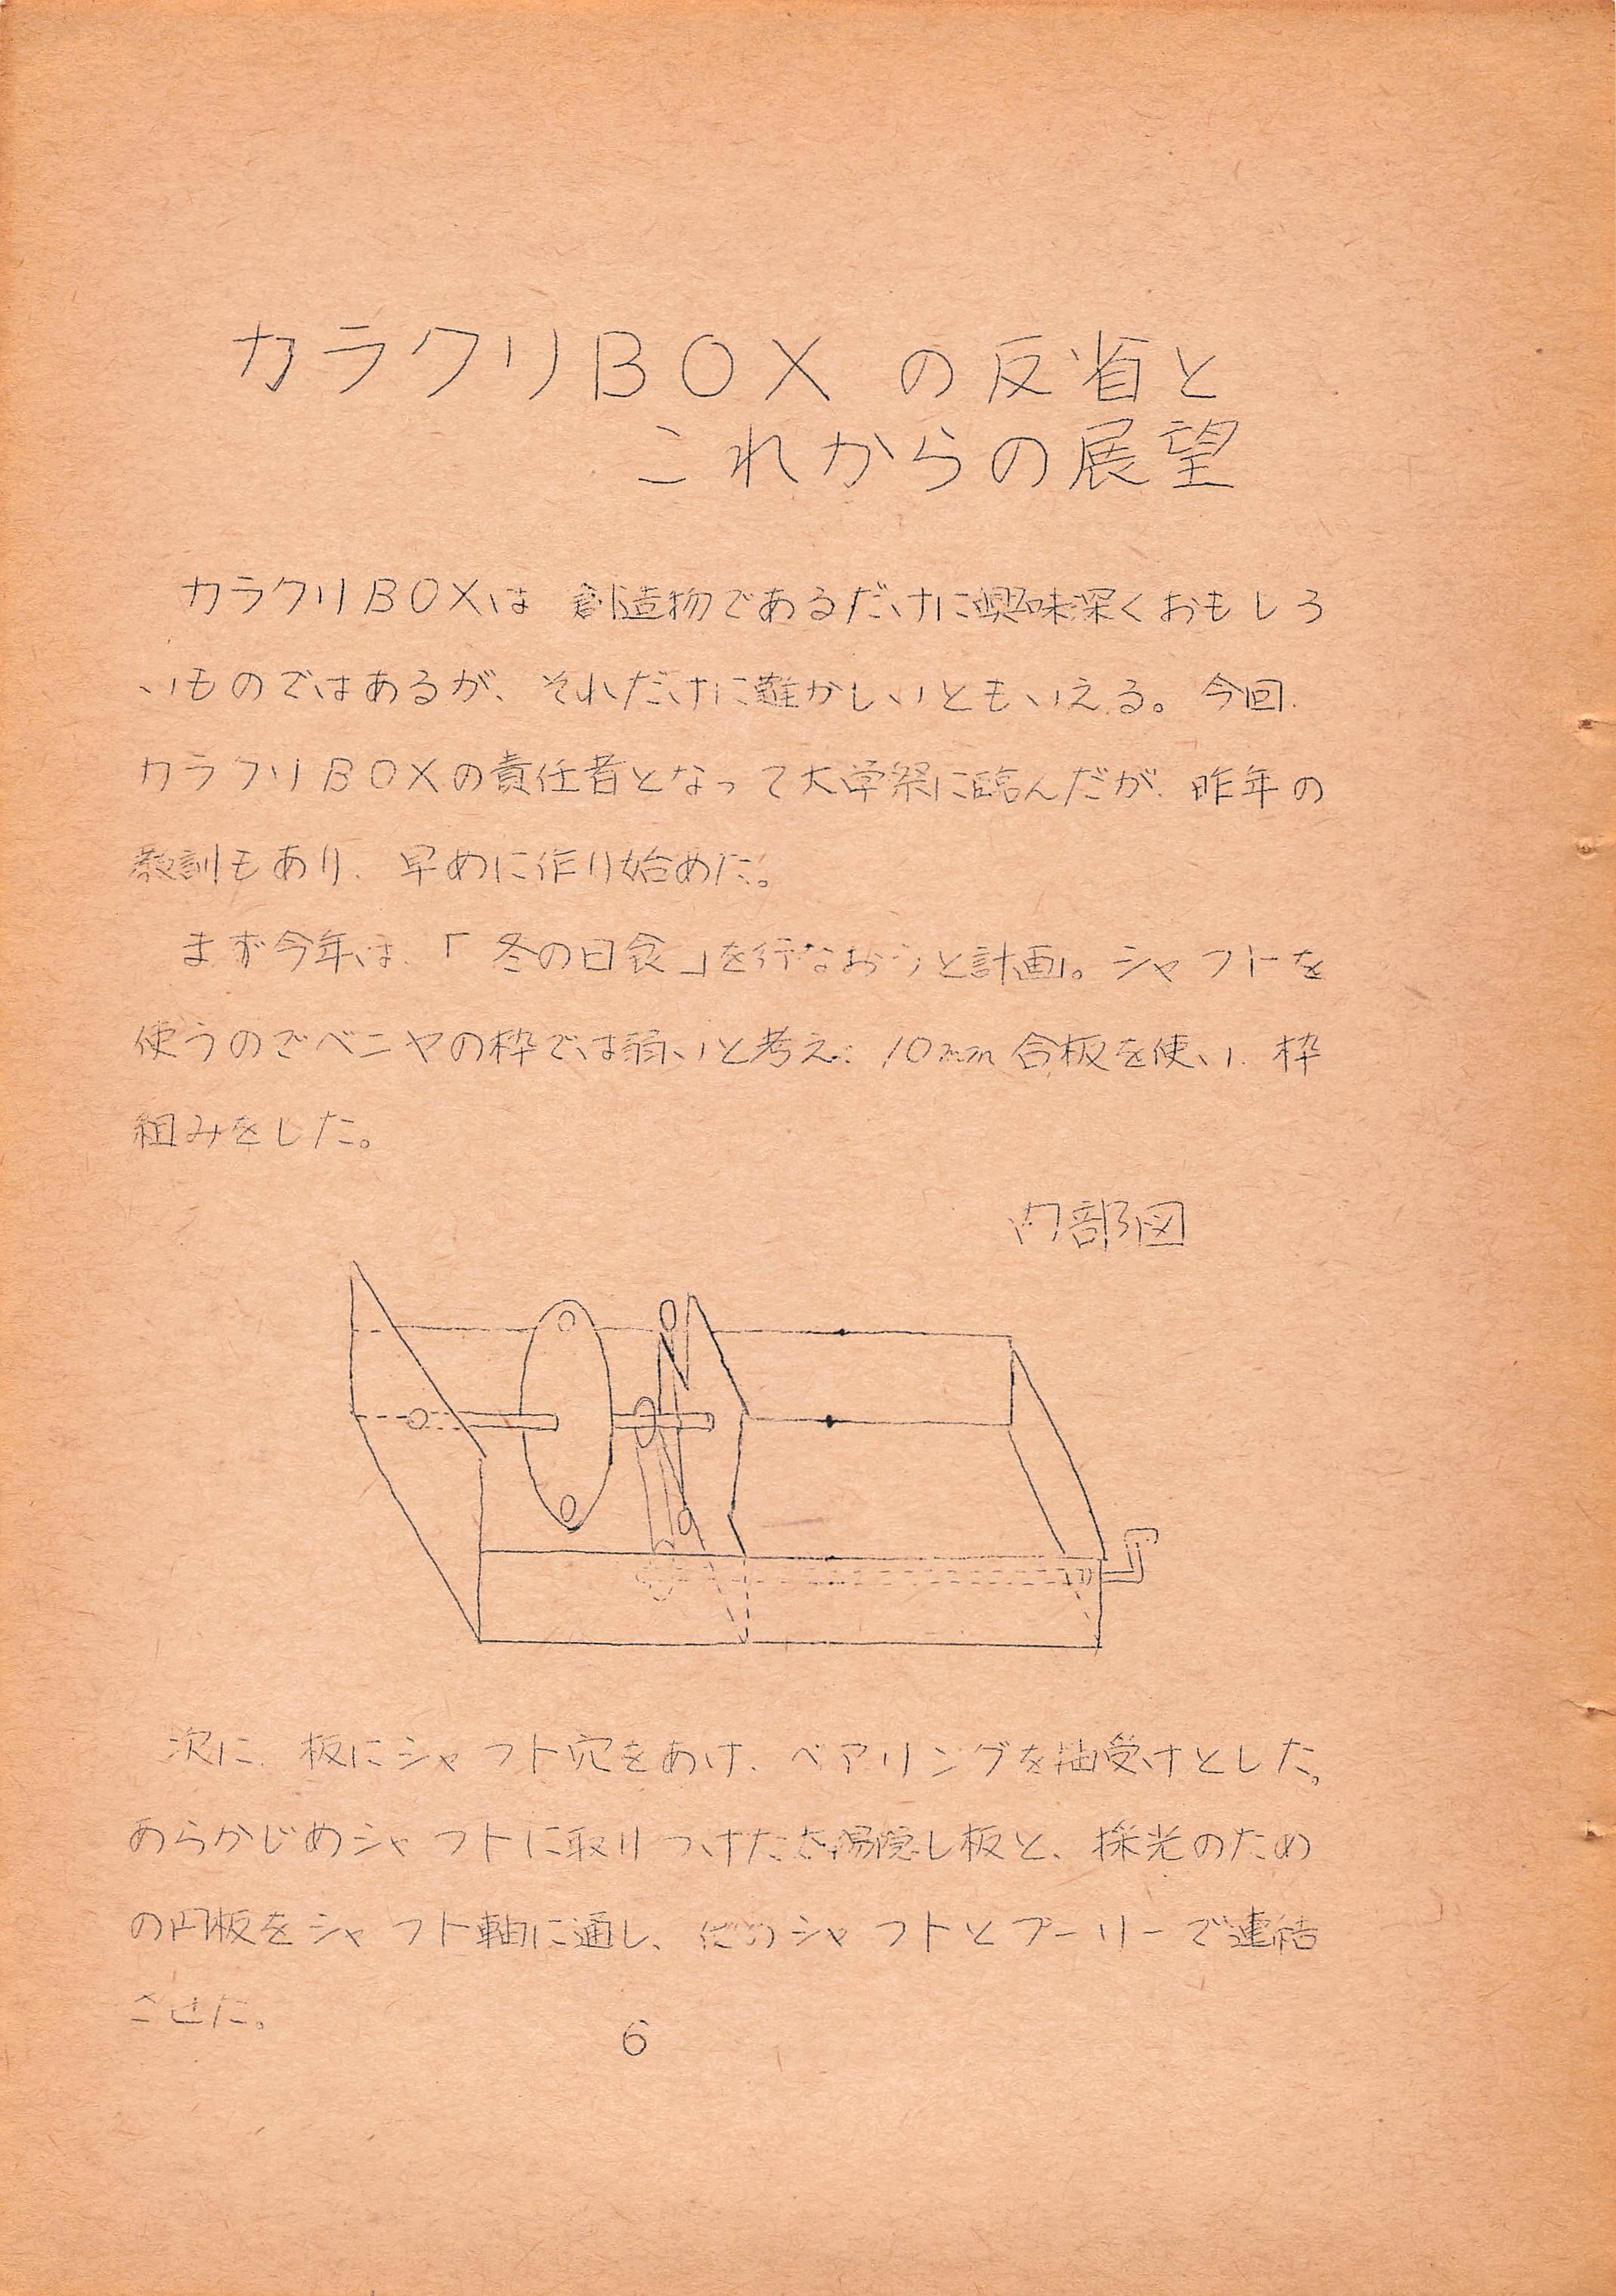 カラクリBOX の反省と
これからの展望
カラクリBOXは 創造物であるだけに興味深くおもしろ
いものではあるが、それだけに難かしいともいえる。今回、
カラクリBOXの責任者となって大学祭に臨んだが、昨年の
教訓もあり、早めに作り始めた。
まず今年は、「冬の日食」を行なおうと計画。シャフトを
使うのでベニヤの枠では弱いと考え、10mm合板を使い、枠
組みをした。
内部図
次に、板にシャフト穴をあけ、ベアリングを軸受けとした。
あらかじめシャフトに取りつけた太陽隠し板と、採光のため
の円板をシャフト軸に通し、他のシャフトとプーリーで連結
させた。
6